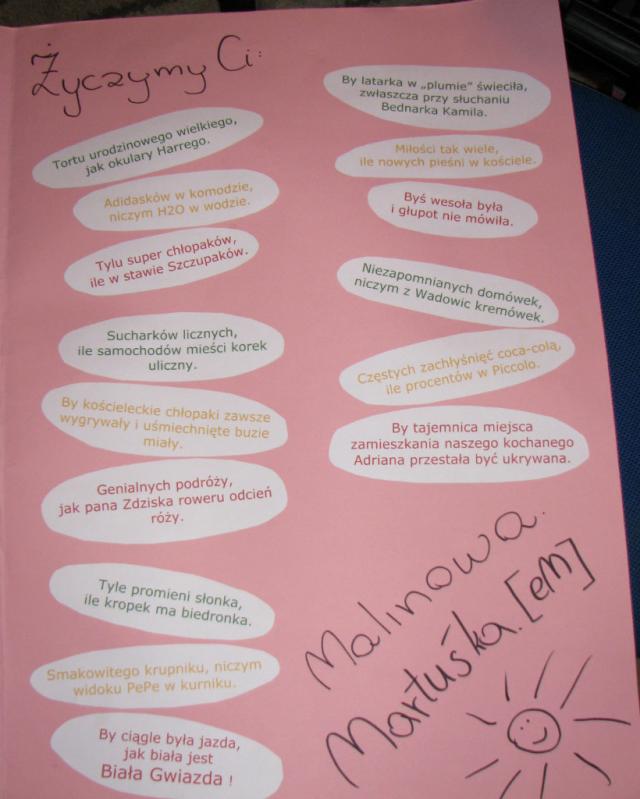 Życzymy Ci:
Tortu urodzinowego wielkiego,
jak okulary Harrego.
Adidasków w komodzie,
niczym H2O w wodzie.
Tylu super chłopaków,
ile w stawie Szczupaków.
Sucharków licznych,
ile samochodów mieści korek
uliczny.
By kościeleckie chłopaki zawsze
wygrywały i uśmiechnięte buzie
miały.
Genialnych podróży,
jak pana Zdziska roweru odcień
róży.
Tyle promieni słonka,
ile kropek ma biedronka.
Smakowitego krupniku, niczym
widoku PePe w kurniku.
By ciągle była jazda,
jak biała jest
Biała Gwiazda !
By latarka w „plumie” świeciła,
zwłaszcza przy słuchaniu
Bednarka Kamila.
Miłości tak wiele,
ile nowych pieśni w kościele.
Byś wesoła była
i głupot nie mówiła.
Niezapomnianych domówek,
niczym z Wadowic kremówek.
Częstych zachłyśnięć coca-colą,
ile procentów w Piccolo.
By tajemnica miejsca
zamieszkania naszego kochanego
Adriana przestała być ukrywana.
Malinowa.
Martuśka.[eM]